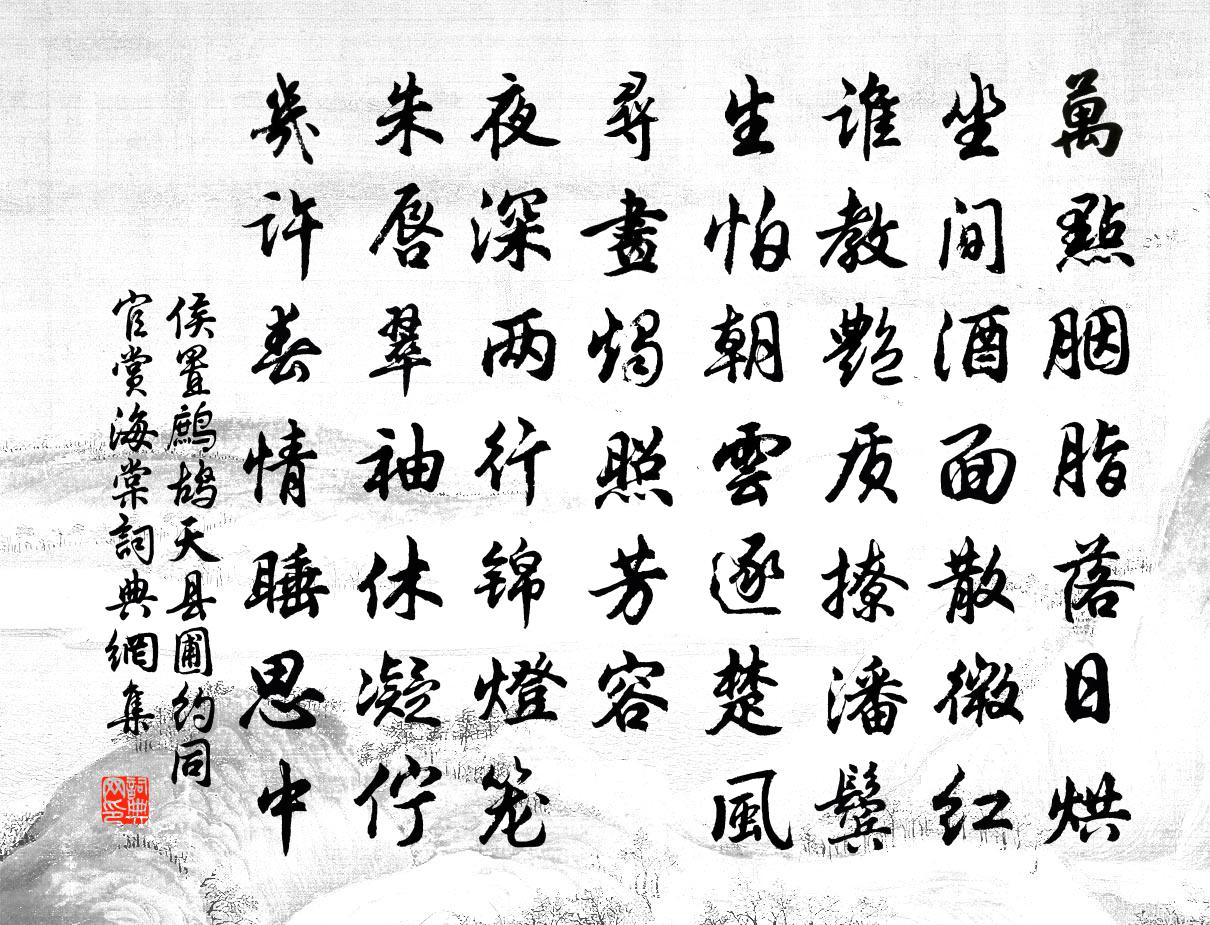 萬點胭脂落日烘
坐間酒面散微红
谁教艷质撩潘鬓
生怕朝雲逐楚風
尋畫燭照芳容
夜深两行锦燈笼
朱唇翠袖休凝佇
幾许春情睡思中
侯置鷓鴣天县圃约同
官赏海棠詞典網集
詞典网印